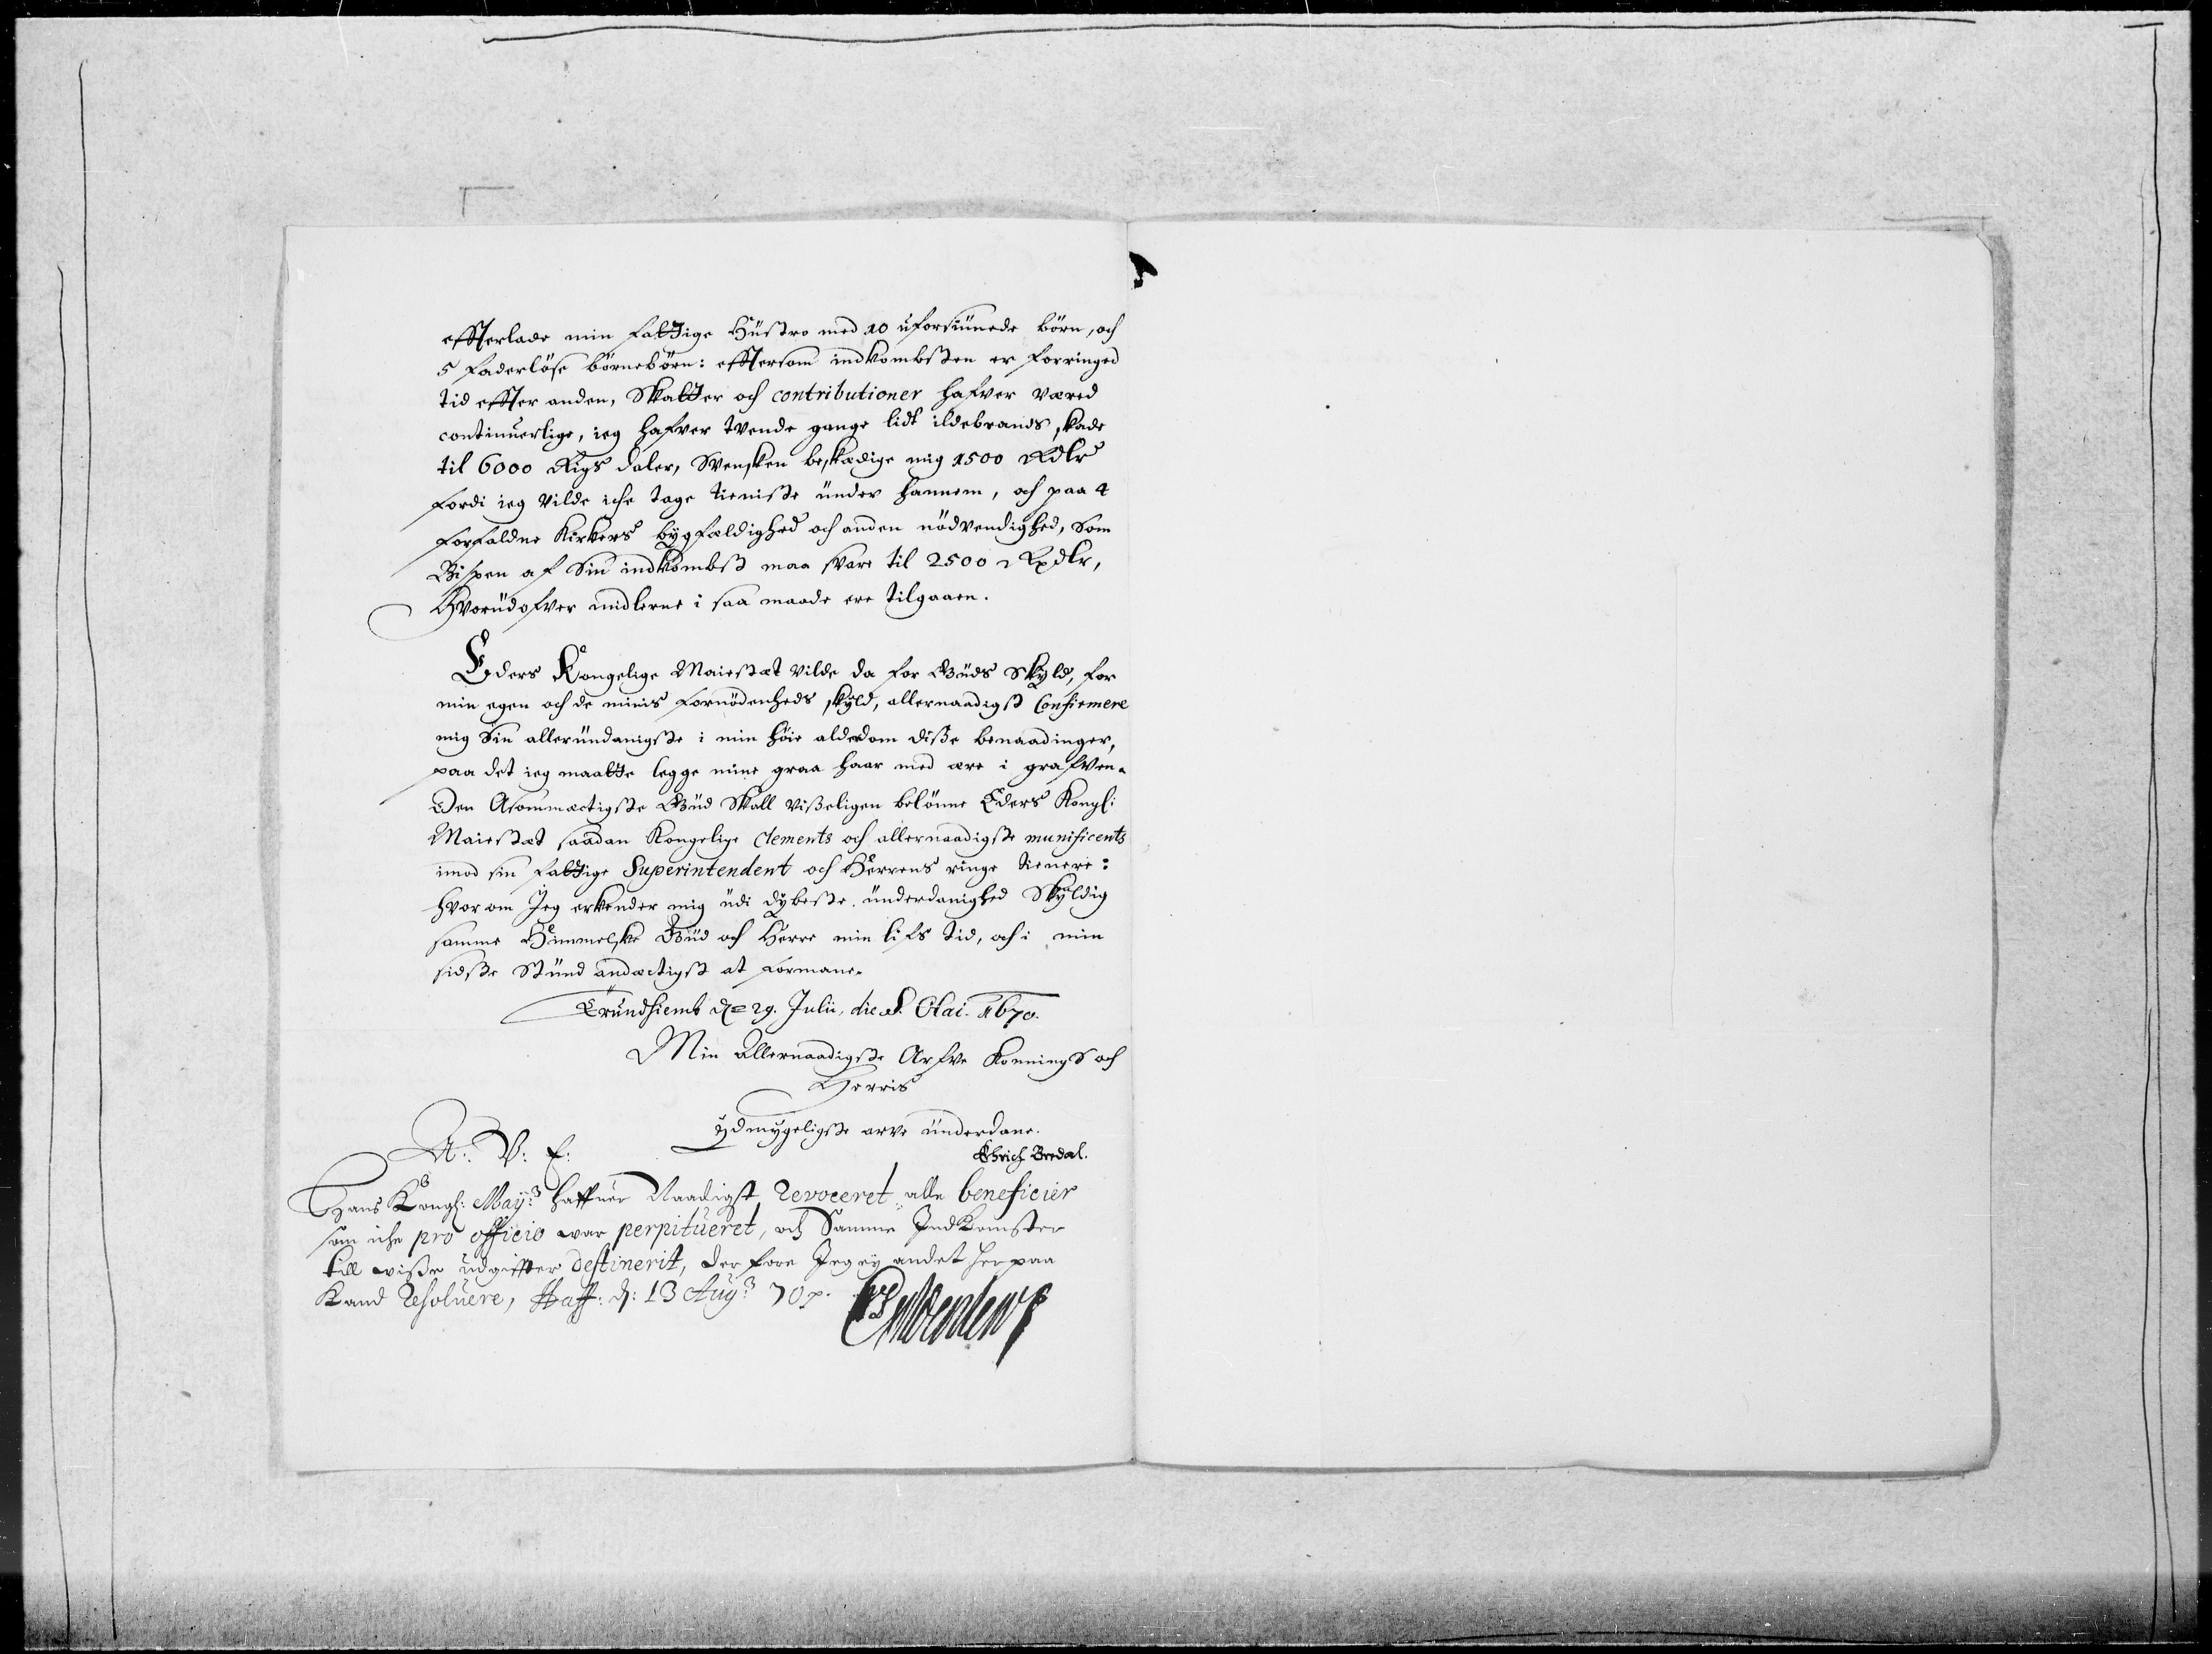 effterlade min fattige Hüstro med 10 üforsiünede börn, och
5 faderlöse börnebörn: effterson indkombsten er forringed
tid effter anden, Skatter och contributioner hafver værid
continuerlige, ieg hafver tvende gange lidt ildebrands skade
til 6000 Rigs daler, Svensken beskædige mig 1500 Rdlr
fordi ieg vilde iche tage tieniste ünder hannem, och paa 4
forfaldne Kirkers bygfældighed och anden nödvendighed, Som
Bispen af Sin indkombst maa svare til 2500 Rxdlr,
Hvorüdofver midlerne i saa maade ere tilgaaen.
Eders Kongelige Maiestæt vilde da for Güds Skyld, for
min egen och de minis fornödenheds skyld, allernaadigst Confirmere
mig Sin alleründanigste i min höie alderdom diße benaadinger,
paa det ieg maatte legge mine graa haar med ære i grafven.
Den Alsommæctigste Güd Skall vißeligen belönne Eders Kongl:
Maiestæt saadan Kongelige Clements och allernaadigste munificents
imod sin fattige Superintendent och Herrens ringe tienere:
hvorom Jeg erkender mig üdi dybeste ünderdanighed Skyldig
samme Himmelske Güd och Herre min lifs tid, och i min
sidste Stünd andæctigst at formane.
Trundhiemb d= 29. Julii, die S. Olai. 1670.
Min Allernaadigste Arfve Konnings och
Herris
ydmygeligste arve ünderdane.
Ehrich Bredal.
A: V: E:
Hans Kongl: Mayts haffuer Naadigst revoceret alle beneficier
som iche pro officio war perpitueret, och Samme Indkomster
till wiße udgiffter destinerit, der fore Jeg ey andet her paa
Kand resoluere, Haff: d: 13 Augs 70